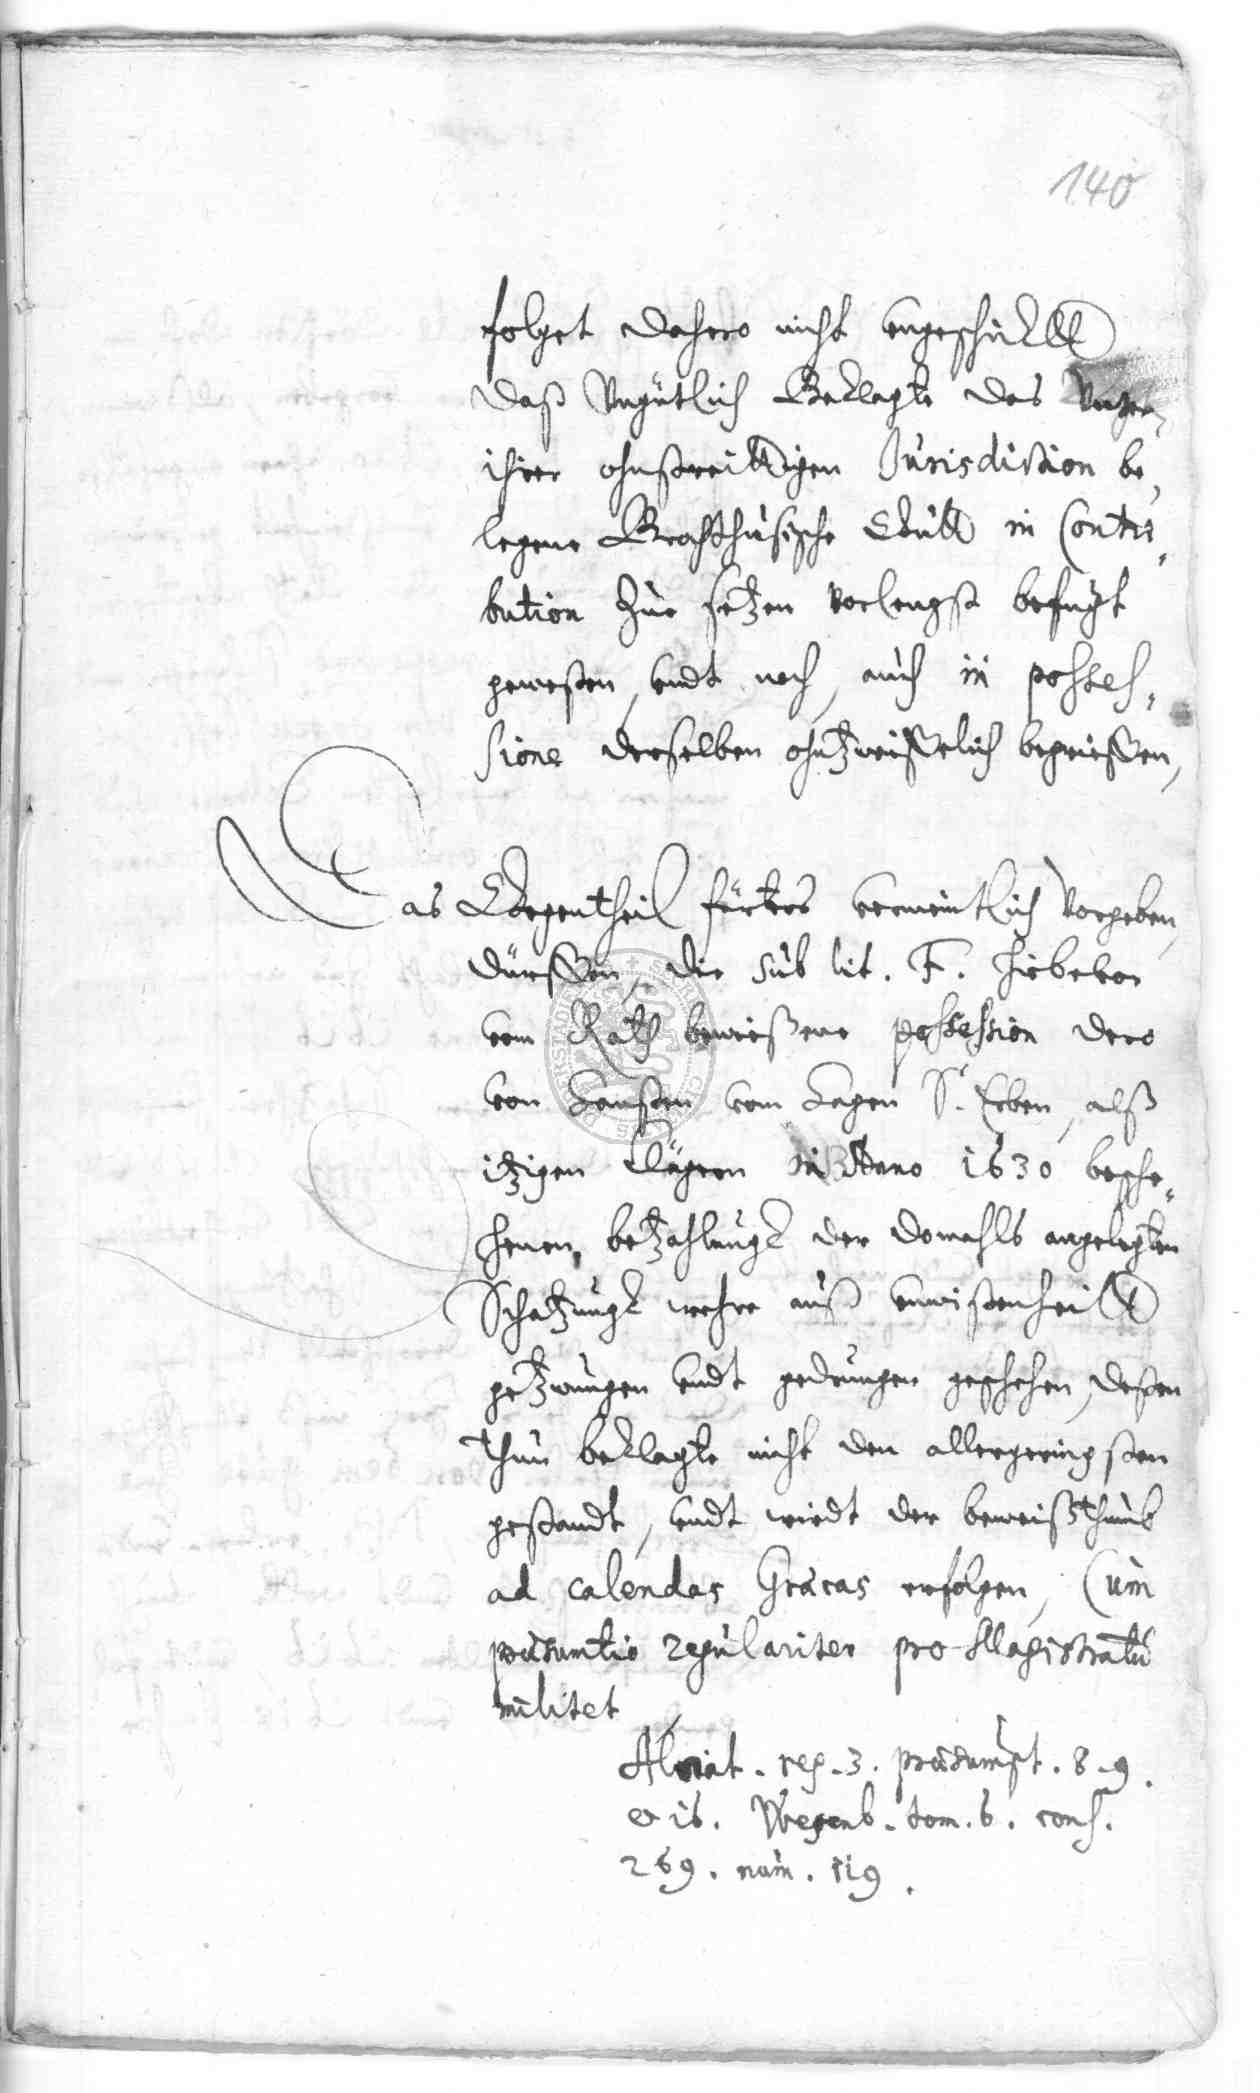 140
folget dahero nicht ungeschickt
daß Vngütlich Beklagte das Vnter
ihrer ohnstreittigen Jurisdiction be,
legene Brochthusische Gutt in Contri,
bution zue setzen vorlengst befugt
geweßen, undt noch, auch in posses,
sione derselben ohnzweiffelich begrieffen,
Das Gegentheil fürters vermeintlich vorgeben
dürffen, die sub lit. F. hiebevor
vom Rath bewießene possession dero
von Lansten vom Hagen S. Erben, alß
itzigen Clägern in Anno 1630 besche,
henen, bezahlung der domahls angelegten
Schatzung wehre auß unwißenheitt
gezwungen undt gedrungen geschehen, deßen
thun beklagte nicht den allergeringsten
gestandt, undt wirdt der beweißthumb
ad calendas Græcas erfolgen, Cum
præsumtio regulariter pro Magistratu
militet
Alciat. reg. 3. præsumpt. 8. 9.
& 16. Wesenb. tom. 6. cons.
269. num. 119.